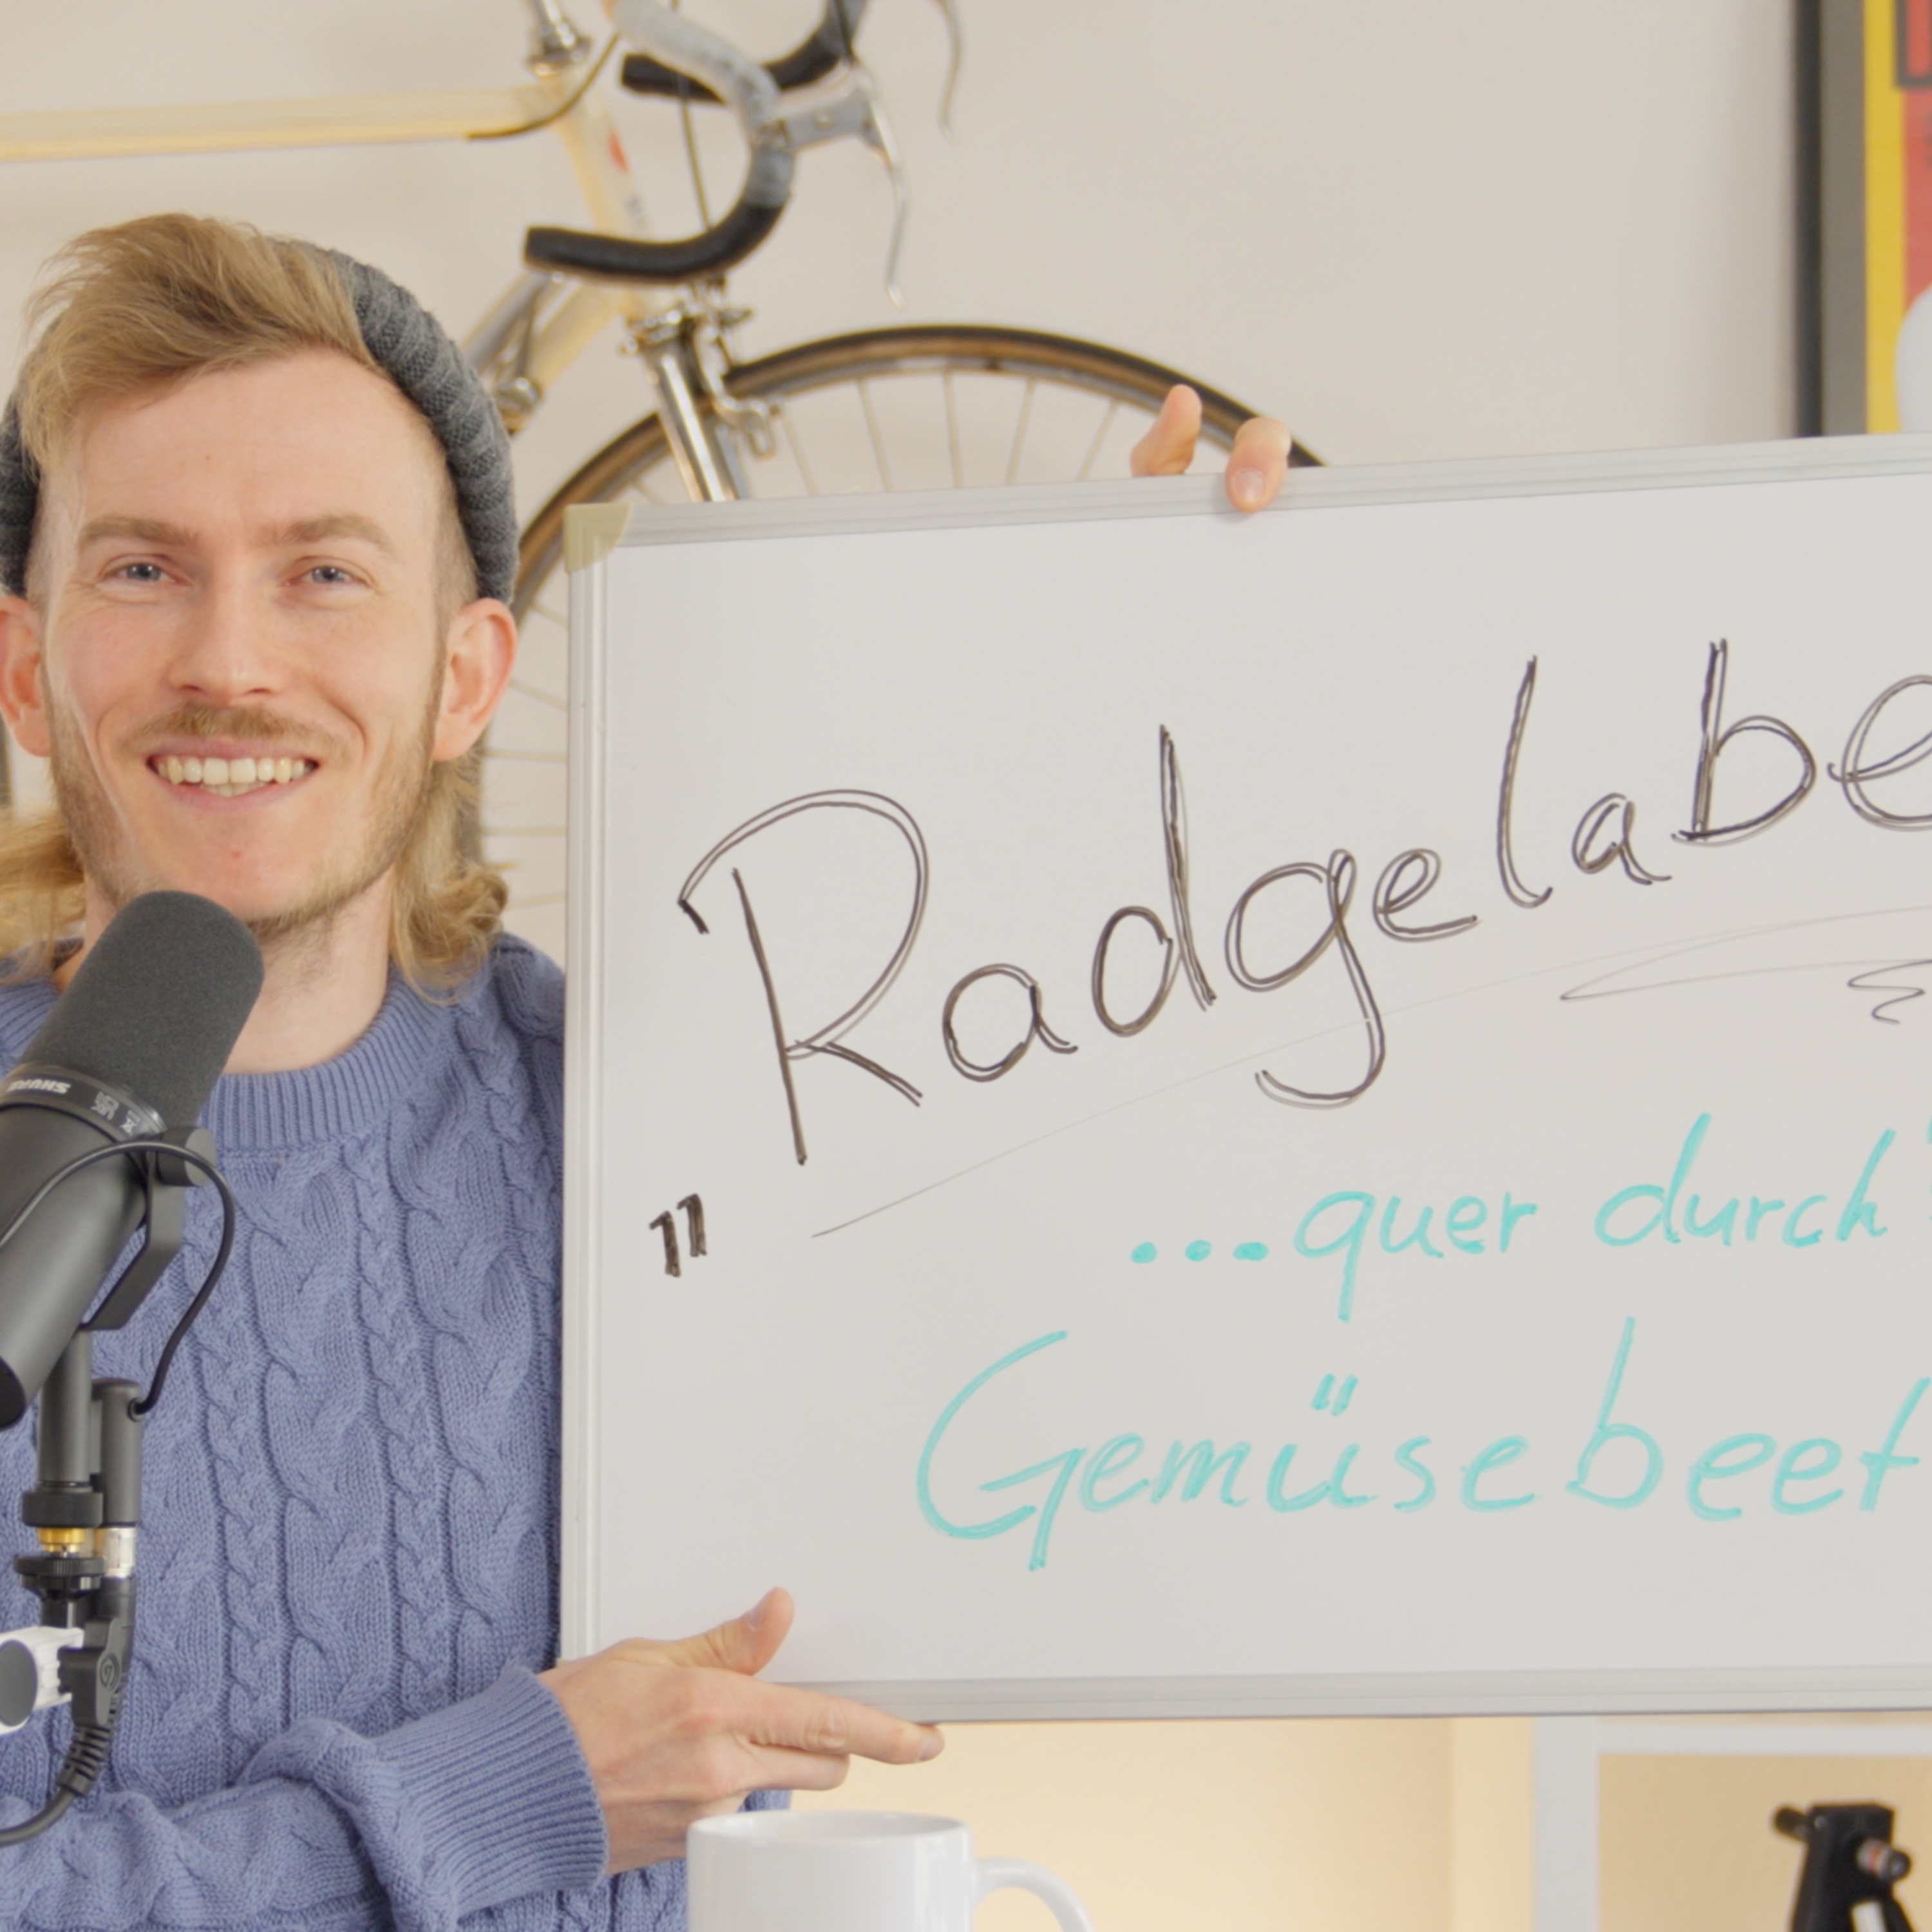 „Radgelabe
...quer durch'
Gemüsebeet
SHURE